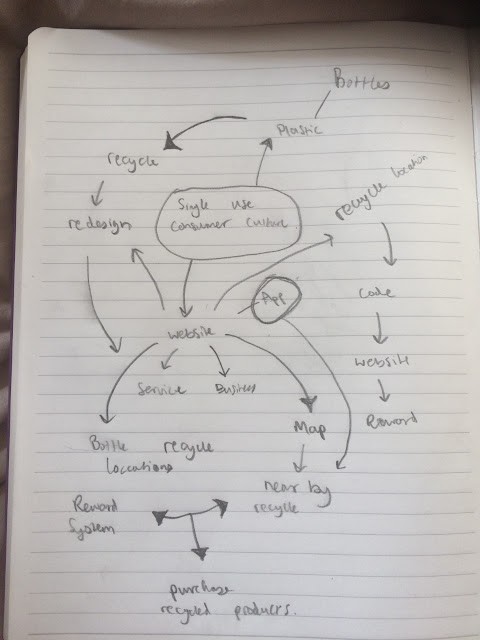 Bottles
Plastic
recycle
recycle location
Single use
consumer culture.
redesign
App
Code
website
website
Service
Business
Reward
Map
Bottle recycle
Loccations
near by
recycle
Reward
System
purchase
recycled producers.